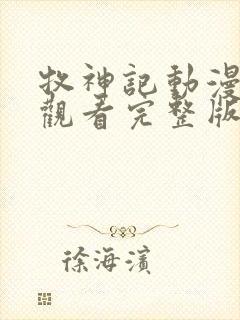 牧神記動漫
觀看完整版
徐海濱